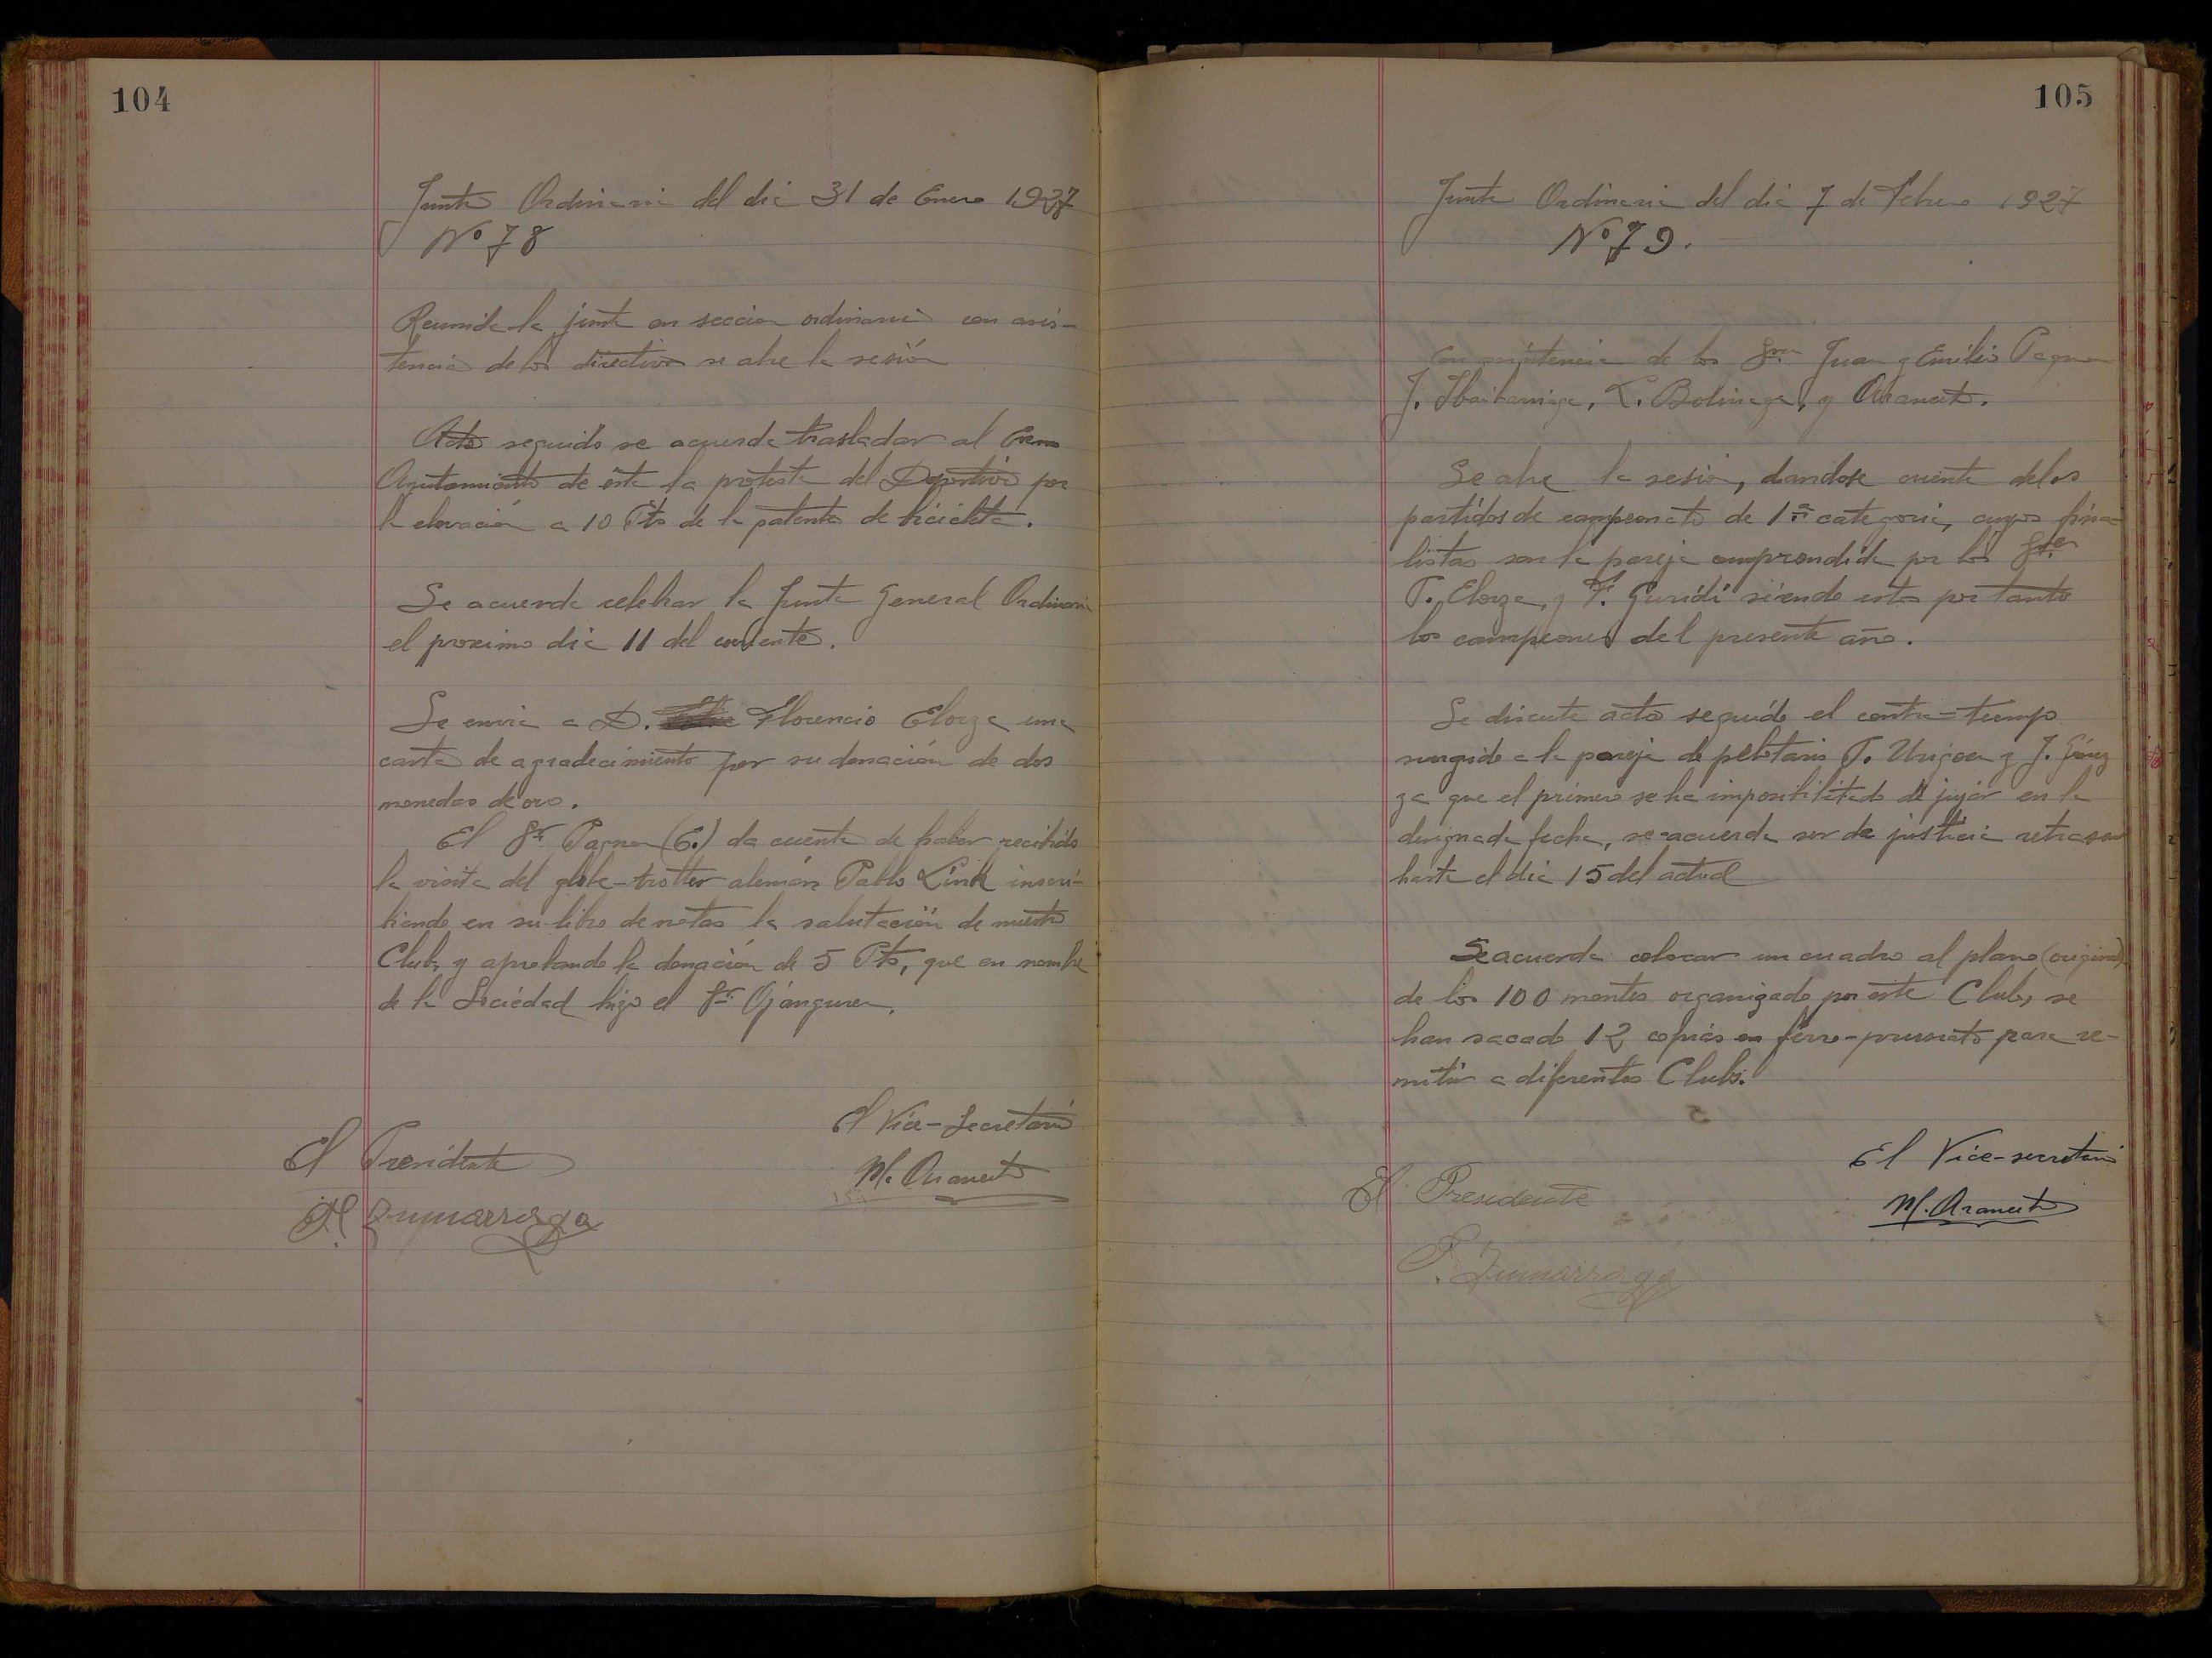 104
Junta Ordinaria del dia 31 de Enero 1927
Nº 78
Reunida la junta en seccion ordinaria con asis-
tencia de los directivos se abre la sesión
Acto seguido se acuerda trasladar al Excmo
Ayutamiento de esta la protesta del Deportivo por
la elevación a 10 Pts de la patente de bicicleta.
Se acuerda celebrar la Junta General Ordinaria
el proximo dia 11 del corriente.
Se envia a D. Florencio Elorza una
carta de agradecimiento por su donación de dos
monedas de oro.
El Sr Pagna (E.) da cuenta de haber recibido
la visita del globe-trotter alemán Pablo Link inscri-
biendo en su libro de notas la salutación de nuestro
Club, y aprobando la donación de 5 Pts, que en nombre
de la Sociedad hizo el Sr Ojanguren.
El Vice-Secretario
El Presidente
M. Araneta
Zumarraga
105
Junta Ordinaria del dia 7 de Febrero 1927
Nº 79.
Con asistencia de los Sres Juan y Emilio Pagna
J. Ibaibarriaga, L. Bolinaga, y Araneta.
Se abre la sesión, dandose cuenta delos
partidos de campeonato de 1ª categoria, cuyos fina-
listas son la pareja comprendida por los Sres
T. Elorza, y F. Guridi siendo estos por tanto
los campeones del presente año.
Se discute acto seguido el contra-tiempo
surgido a la pareja de pelotaris T. Unigoen y J.
ya que el primero se ha imposibilitado de jugar en la
designada fecha, se acuerda ser de justicia retrasar
hasta el dia 15 del actual
Se acuerda colocar un cuadro al plano (original)
de los 100 montes organizado por este Club, se
han sacado 12 copias en ferro-prusiato para re-
mitir a diferentes Clubs.
El Vice-secretario
El Presidente
M. Araneta
P. Zumarraga